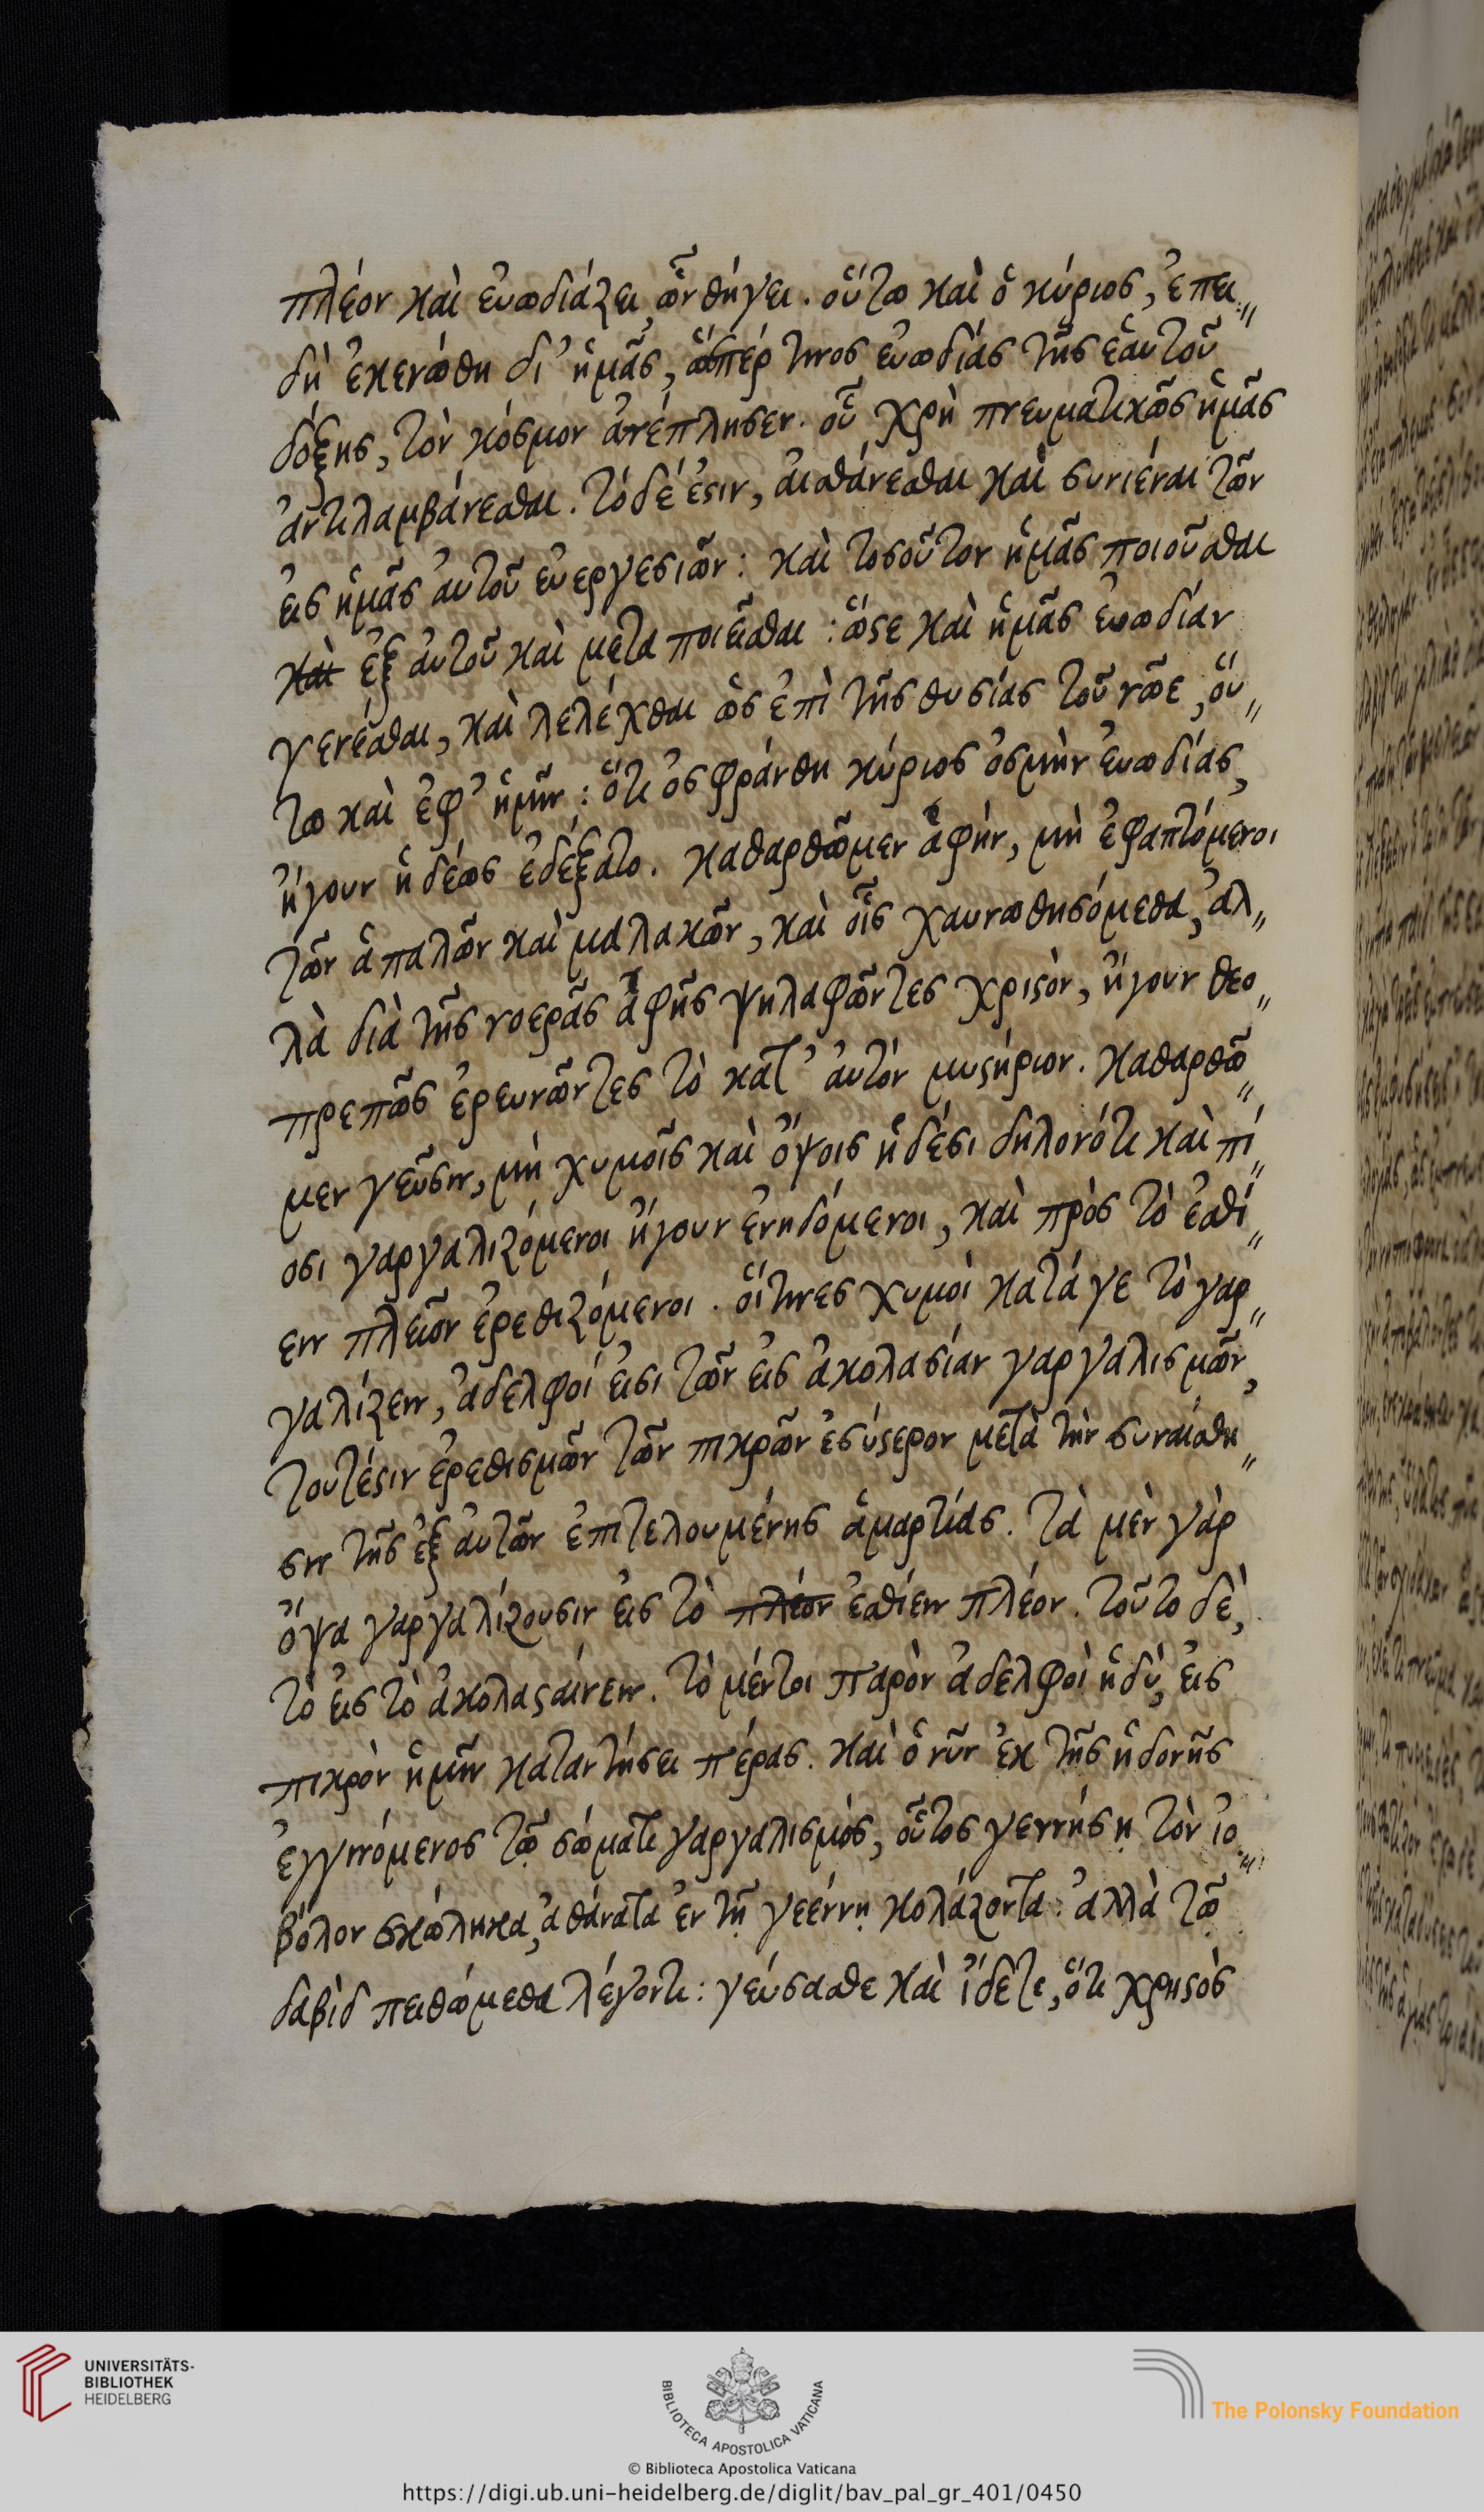 πλέον καὶ εὐωδιάζει, ὧν θήγει. οὕτω καὶ ὁ κύριος, ἐπει„
δὴ ἐκενώθη δι’ ἡμᾶς, ὥσπέρ τινος εὐωδίας τῆς ἑαυτοῦ
δόξης, τὸν κόσμον ἀνέπλησεν. οὗ χρὴ πνευματικῶς ἡμᾶς
ἀντιλαμβάνεσθαι. τὸ δέ ἐστιν, αἰσθάνεσθαι καὶ συνιέναι τῶν
εἰς ἡμᾶς αὐτοῦ εὐεργεσιῶν: καὶ τοσοῦτον ἡμᾶς ποιοῦσθαι
καὶ ἐξ αὐτοῦ καὶ μεταποιεῖσθαι: ὥστε καὶ ἡμᾶς εὐωδίαν
γενέσθαι, καὶ λελέχθαι ὡς ἐπὶ τῆς θυσίας τοῦ νῶε, οὕ„
τω καὶ ἐφ’ ἡμῖν: ὅτι ὀσφράνθη κύριος ὀσμὴν εὐωδίας,
ἤγουν ἡδέως ἐδέξατο. καθαρθῶμεν ἁφήν, μὴ ἐφαπτόμενοι
τῶν ἁπαλῶν καὶ μαλακῶν, καὶ οἷς χαυνωθησόμεθα, ἀλ„
λὰ διὰ τῆς νοερᾶς ἁφῆς ψηλαφῶντες χριστὸν, ἤγουν θεο„
πρεπῶς ἐρευνῶντες τὸ κατ’ αὐτὸν μυστήριον. καθαρθῶ„
μεν γεῦσιν, μὴ χυμοῖς καὶ ὄψοις ἡδέσι δηλονότι καὶ πί„
οσι γαργαλιζόμενοι ἤγουν ἐνηδόμενοι, καὶ πρὸς τὸ ἐσθί„
ειν πλεῖον ἐρεθιζόμενοι. οἵτινες χυμοὶ κατά γε τὸ γαρ„
γαλίζειν, ἀδελφοί εἰσι τῶν εἰς ἀκολασίαν γαργαλισμῶν,
τουτέστιν ἐρεθισμῶν τῶν πικρῶν ἐσύστερον μετὰ τὴν συναίσθη„
σιν τῆς ἐξ αὐτῶν ἐπιτελουμένης ἁμαρτίας. τὰ μὲν γὰρ
ὄψα γαργαλίζουσιν εἰς τὸ πλέον ἐσθίειν πλέον. τοῦτο δὲ,
τὸ εἰς τὸ ἀκολασταίνειν. τὸ μέντοι παρὸν ἀδελφοὶ ἡδὺ, εἰς
πικρὸν ἡμῖν καταντήσει πέρας. καὶ ὁ νῦν ἐκ τῆς ἡδονῆς
ἐγγινόμενος τῷ σώματι γαργαλισμὸς, οὗτος γεννήσῃ τὸν ἰο„
βόλον σκώληκα, ἀθάνατα ἐν τῇ γεέννῃ κολάζοντα: ἀλλὰ τῷ
δαβὶδ πειθώμεθα λέγοντι: γεύσασθε καὶ ἴδετε, ὅτι χρηστὸς
UNIVERSITÄTS-
BIBLIOTHEK
HEIDELBERG
BIBLIOTECA APOSTOLICA VATICANA
The Polonsky Foundation
© Biblioteca Apostolica Vaticana
https://digi.ub.uni-heidelberg.de/diglit/bav_pal_gr_401/0450